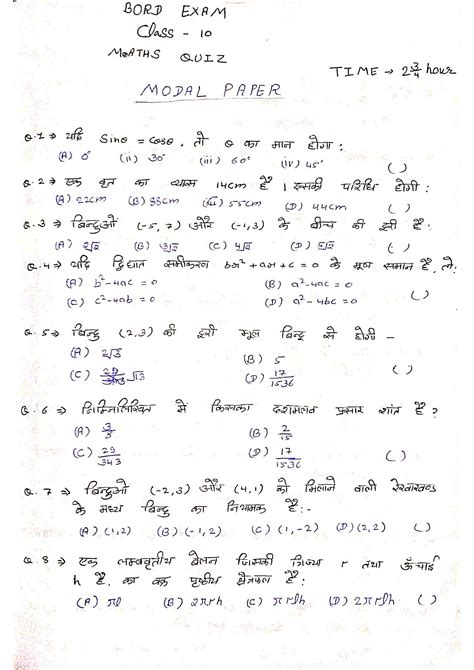 BORD EXAM
Class - 10
MATHS QUIZ
TIME → 2 3/4 hour
MODAL PAPER
Q.1 ⇒ यदि Sinθ = Cosθ, तो θ का मान होगा :
(A) 0° (ii) 30° (iii) 60° (iv) 45° ( )
Q.2 ⇒ एक वृत का व्यास 14cm है । इसकी परिधि होगी :
(A) 22cm (B) 88cm (C) 55cm (D) 44cm ( )
Q.3 ⇒ बिन्दुओं (-5, 7) और (-1, 3) के बीच की दूरी है :
(A) 2√2 (B) 3√2 (C) 4√2 (D) 5√2 ( )
Q.4 ⇒ यदि द्विघात समीकरण bx²+ax+c = 0 के मूल समान है, तो :
(A) b²-4ac = 0 (B) a²-4bc = 0
(C) c²-4ab = 0 (D) a²-4bc = 0 ( )
Q.5 ⇒ बिन्दु (2,3) की दूरी मूल बिन्दु से होगी -
(A) 2√3 (B) 5
(C) √13 (D) 17/1536 ( )
Q.6 ⇒ निम्नलिखित में किसका दशमलव प्रसार शांत है ?
(A) 3/3 (B) 2/15
(C) 29/343 (D) 17/1536 ( )
Q.7 ⇒ बिन्दुओ (-2,3) और (4,1) को मिलाने वाली रेखाखण्ड
के मध्य बिन्दु का नियामक है :-
(A) (1,2) (B) (-1,2) (C) (1,-2) (D) (2,2) ( )
Q.8 ⇒ एक लम्बवृतीय बेलन जिसकी त्रिज्या r तथा ऊँचाई
h है, का वक्र पृष्ठीय क्षेत्रफल है :
(A) πl (B) 2πrh (C) πr²h (D) 2πr²h ( )